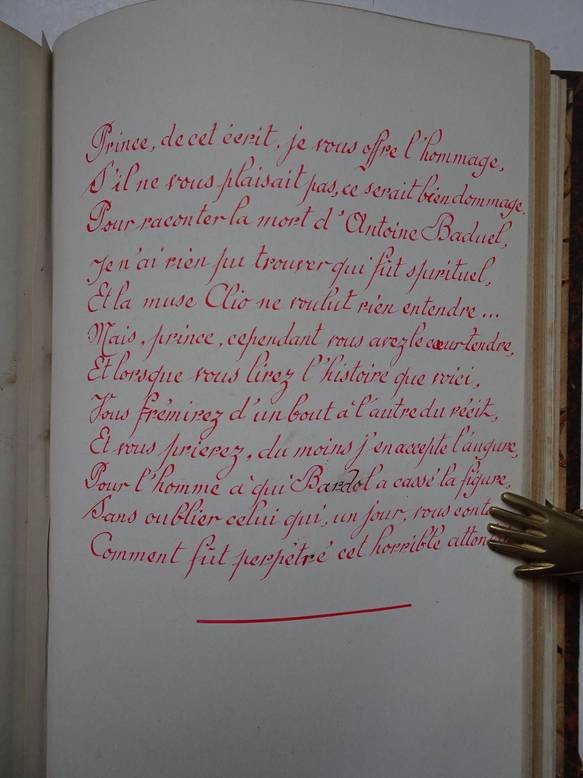 Prince, de cet écrit, je vous offre l'hommage,
S'il ne vous plaisait pas, ce serait bien dommage.
Pour raconter la mort d'Antoine Baduel,
Je n'ai rien pu trouver qui fût spirituel,
Et la muse Clio ne voulut rien entendre...
Mais, prince, cependant vous avez le cœur tendre,
Et lorsque vous lirez l'histoire que voici,
Vous frémirez d'un bout à l'autre du récit,
Et vous prierez, du moins j'en accepte l'augure,
Pour l'homme à qui Bardol a cassé la figure,
Sans oublier celui qui, un jour, vous
Comment fût perpétré cet horrible